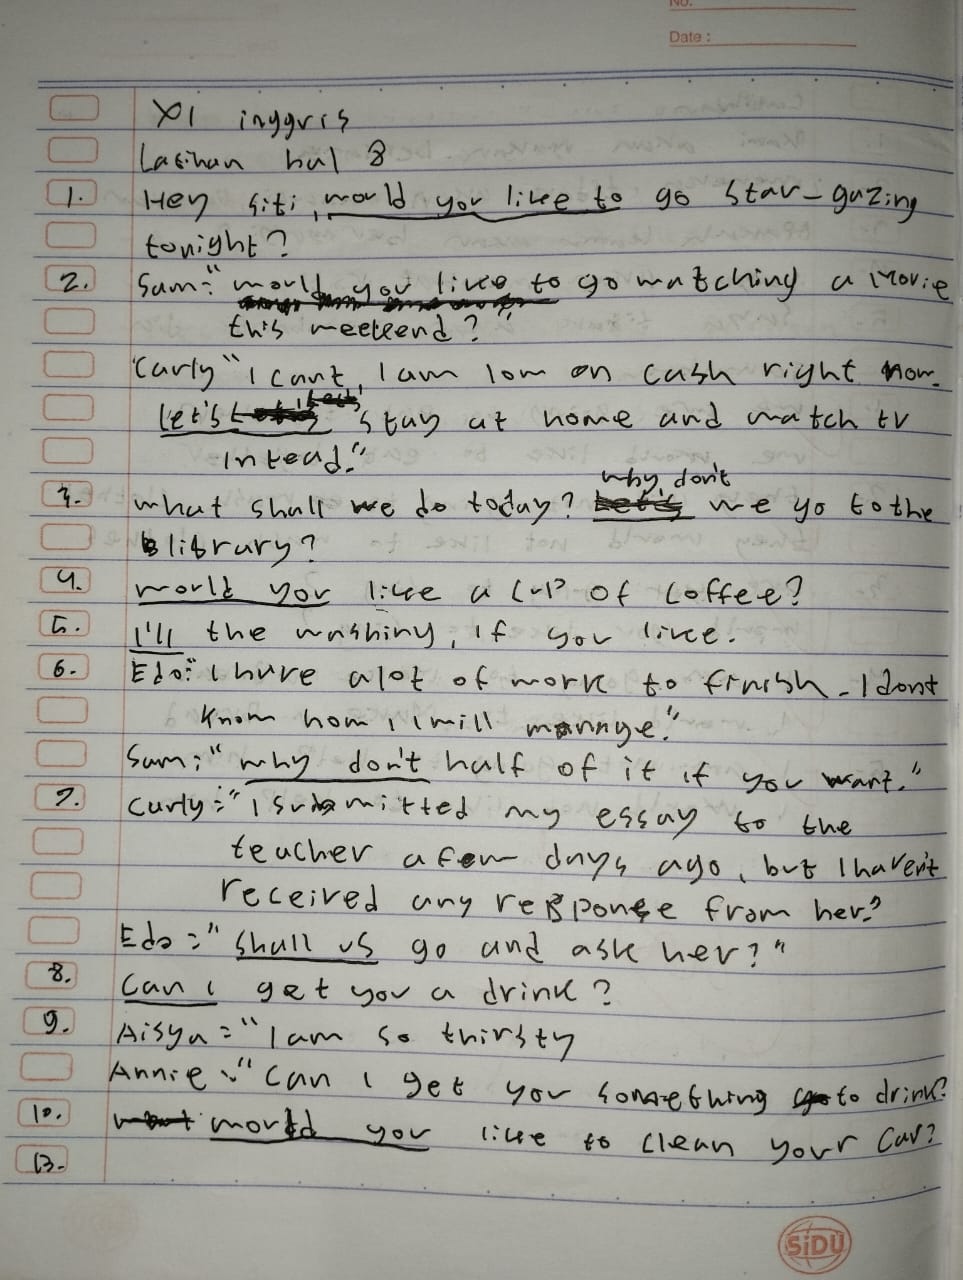 No.
Date :
XI inggris
Latihan hal 8
1. Hey siti, would you like to go star-gazing
tonight?
2. Sam: "would you like to go watching a movie
this weekend?"
"Carly" I cant, I am low on cash right now.
let's stay at home and watch tv
intead."
3. what shall we do today? why don't we go to the
library?
4. would you like a cup of coffee?
5. I'll the washing, if you like.
6. Edo: "I have alot of work to finish. I dont
know how I will mannge."
Sam: "why don't half of it if you want."
7. Carly: "I submitted my essay to the
teacher a few days ago, but I haven't
received any response from her."
Edo = "shall us go and ask her?"
8. Can i get you a drink?
9. Aisya = "I am so thirsty
Annie: "can i get you something to drink?
10. would you like to clean your car?
13.
SiDU